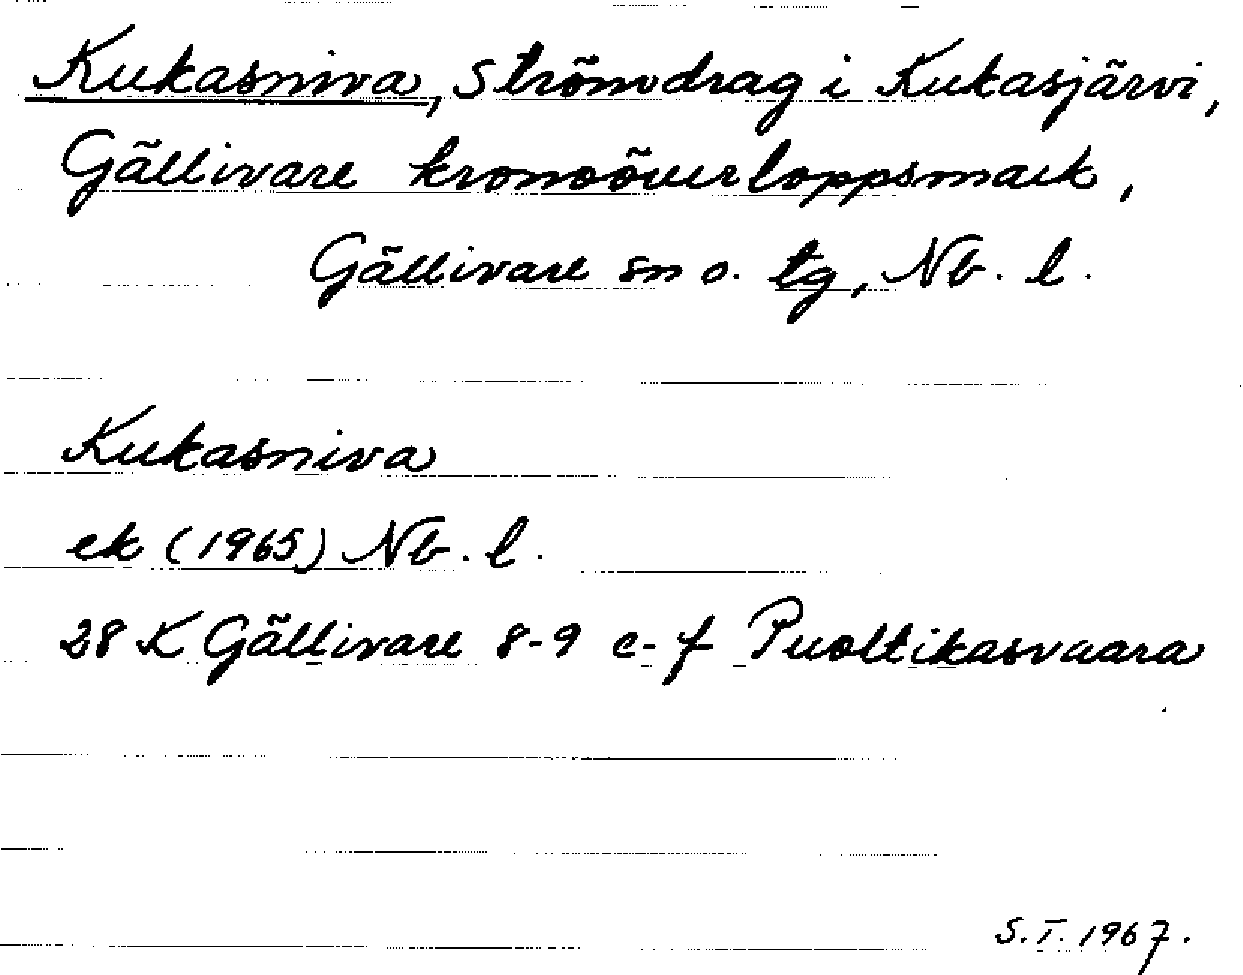 Kukasniva, Strömdrag i Kukasjärvi,
Gällivare kronoöverloppsmark,
Gällivare sn o. tg, Nb. l.
Kukasniva
ek (1965) Nb. l.
28 K Gällivare 8-9 e-f Puoltikasvaara
S.T. 1967.